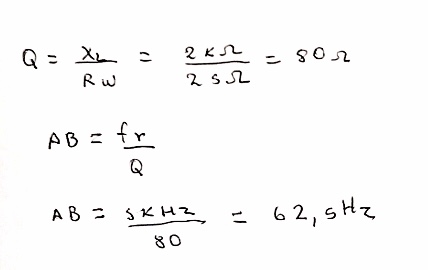 Q = XL / RW = 2KΩ / 25Ω = 80Ω
AB = fr / Q
AB = 5KHz / 80 = 62,5Hz